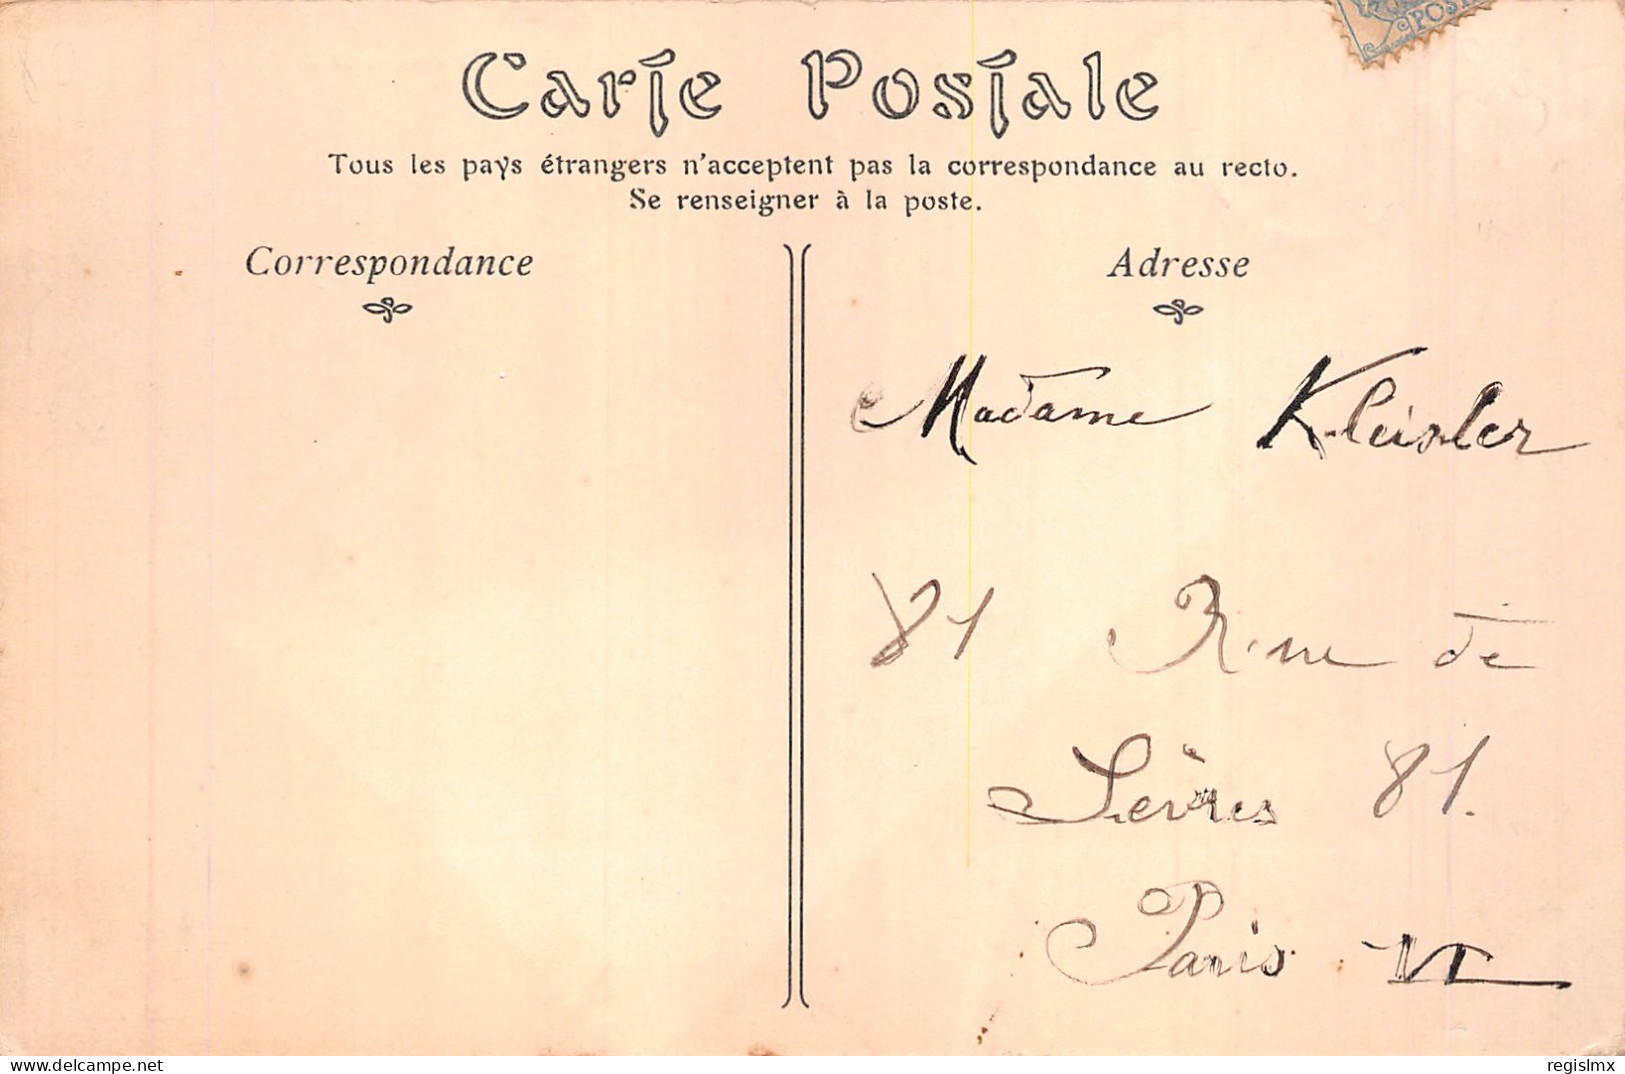 POST
Carte Postale
Tous les pays étrangers n'acceptent pas la correspondance au recto.
Se renseigner à la poste.
Correspondance
Adresse
Madame Kleisler
81 Rue de
Sèvres 81.
Paris VI
www.delcampe.net
regislmx